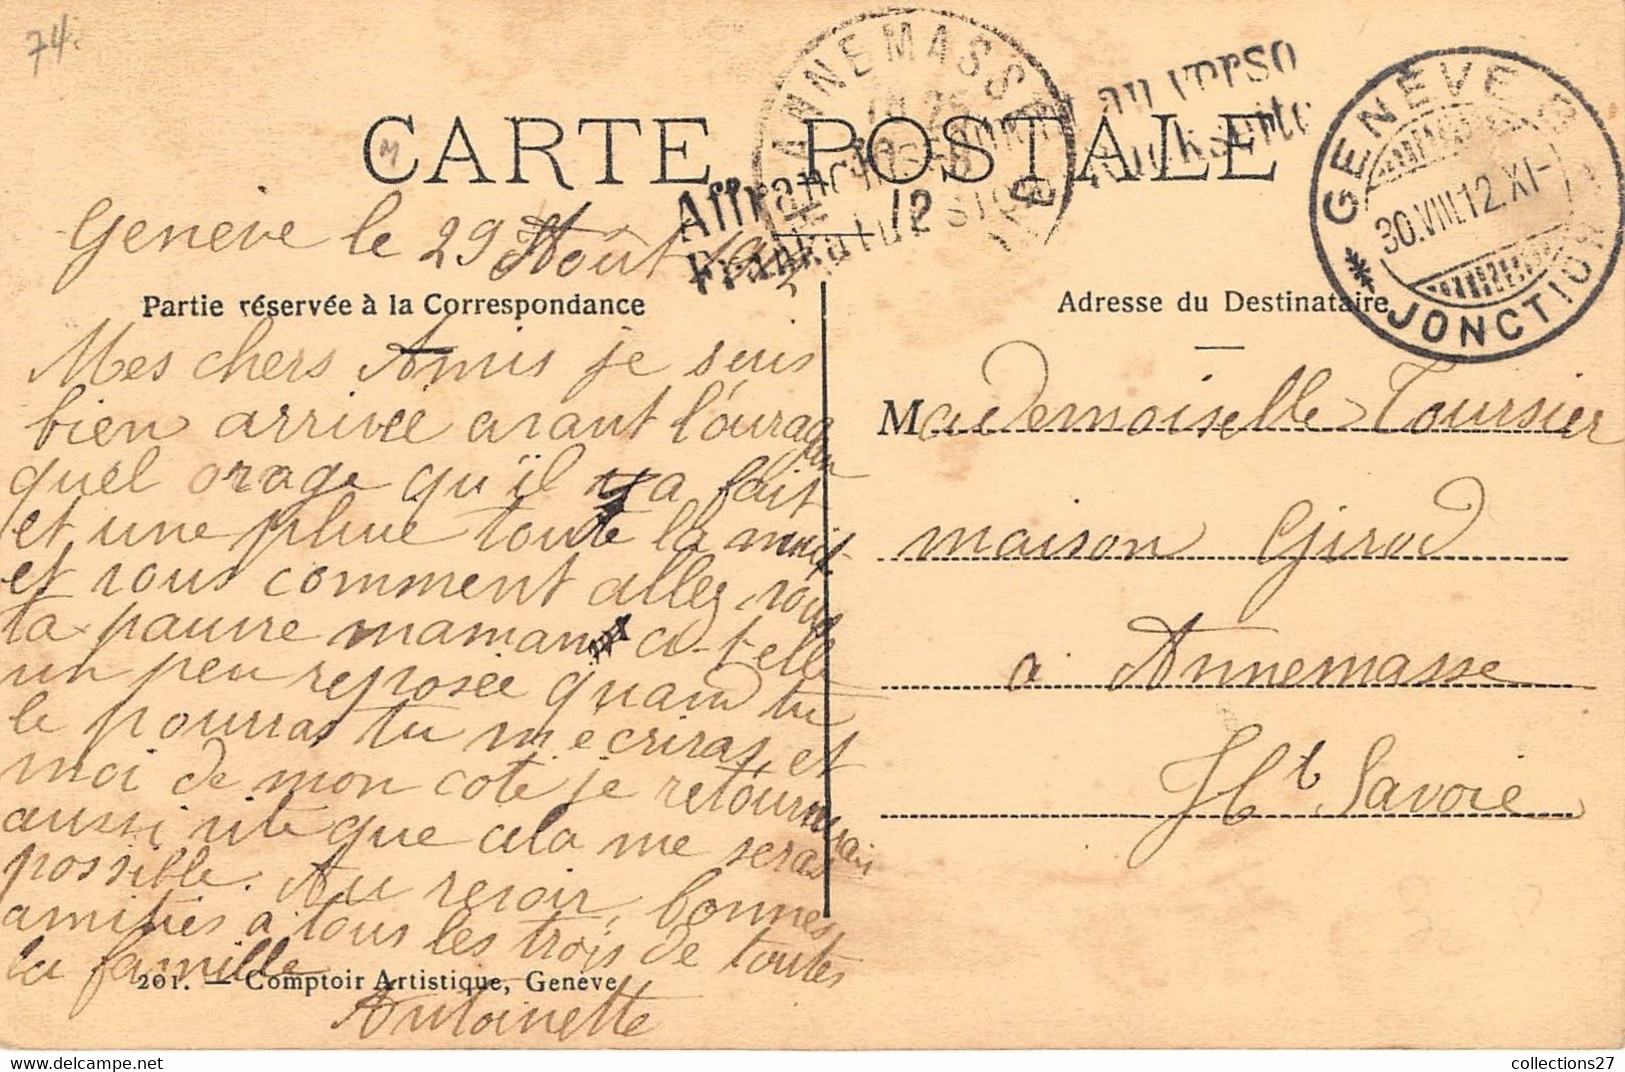 74.
ANNEMASSE
au verso
Rückseite
CARTE POSTALE
Affranchi
Frankatur
12
GENÈVE
30.VIII.12.XI-
JONCTION
Genève le 29 Août
Partie réservée à la Correspondance
Adresse du Destinataire
Mes chers Amis je suis
bien arrivée avant l'ouragan
quel orage qu'il y a fait
et une pluie toute la nuit
et vous comment allez vous
ta pauvre maman a-t-elle
un peu reposée quand tu
le pourras tu m'écriras, et
moi de mon coté je retournerais
aussi vite que cela me seras
possible. Au revoir, bonnes
amitiés a tous les trois de toutes
la famille
Antoinette
Mademoiselle Toursier
maison Girod
a Annemasse
Hte Savoie
201. — Comptoir Artistique, Genève
collections27